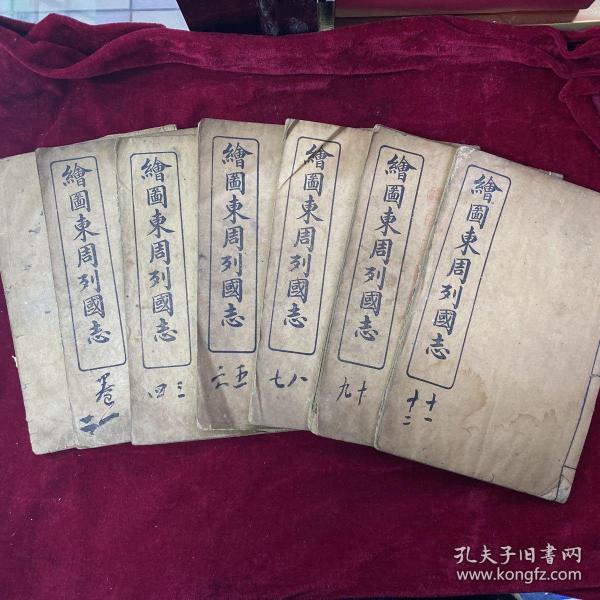 繪圖東周列國志
卷一二
繪圖東周列國志
三四
繪圖東周列國志
五六
繪圖東周列國志
八七
繪圖東周列國志
十九
繪圖東周列國志
十一
十二
孔夫子旧書网
www.kongfz.com